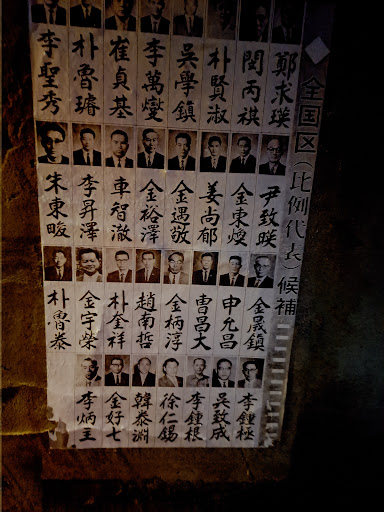 ◆ 全国区(比例代表)候補
鄭求瑛
閔丙祺
朴賢淑
吳學鎮
李萬燮
崔貞基
朴魯璿
李聖秀
尹致暎
金東煥
姜尚郁
金遇敬
金裕澤
車智澈
李昇澤
朱東畯
金晟鎮
申允昌
曹昌大
金柄淳
趙南哲
朴奎祥
金宇榮
朴魯泰
李鍾極
吳致成
李鍾根
徐仁錫
韓泰淵
金好七
李炳主